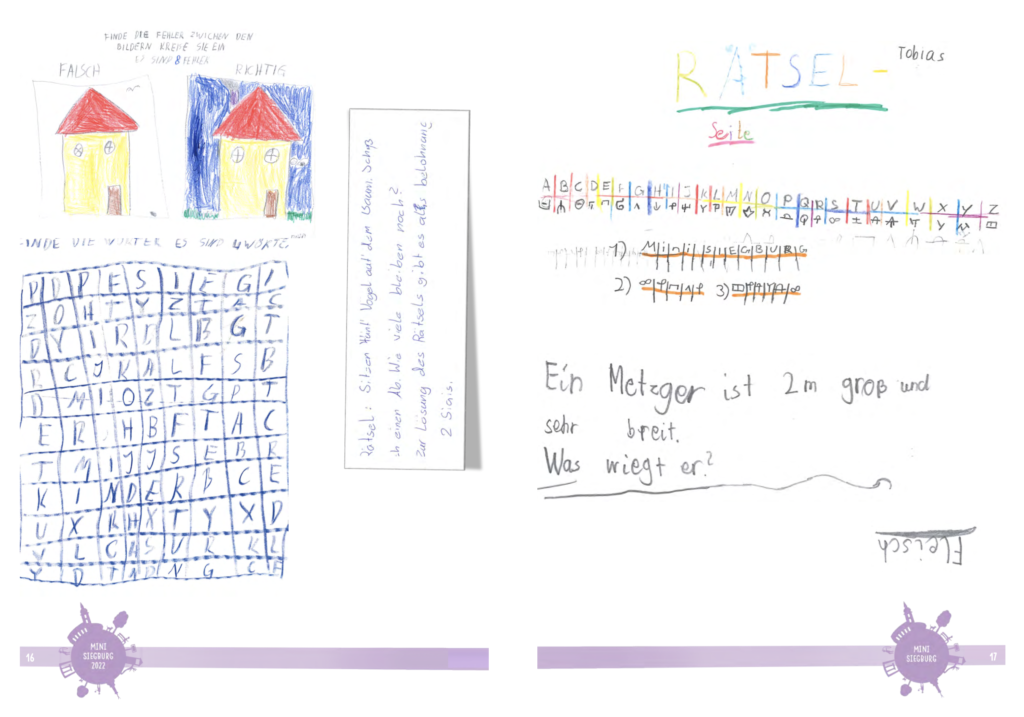 FINDE DIE FEHLER ZWISCHEN DEN
BILDERN
SIE EIN
ES SIND 8 FEHLER
FALSCH
RICHTIG
ES SIND 4
D D P E S I E G L
Z O H T Y Z I A C
D Y I R L B G T
C J K A L F S B
D M I O Z T G P T
E R H B F T A C
T M I J J S E B R
K I N D E R B C E
U X K H X T Y X D
V L C A S U R K L
Y D N G C
Rätsel: Sitzen fünf Vögel auf dem Baum. Schips
einen Ab. Wie viele bleiben noch?
zur Lösung des Rätsels gibt es als belohnung
2 Sigis.
RÄTSEL-
Tobias
Seite
A B C D E F G H I J K L M N O P Q R S T U V W X Y Z
1) M i n i S I E G B U R G
2)
3)
Ein Metzger ist 2m groß und
sehr breit.
Was wiegt er?
Fleisch
16
MINI
SIEGBURG
2022
MINI
SIEGBURG
17